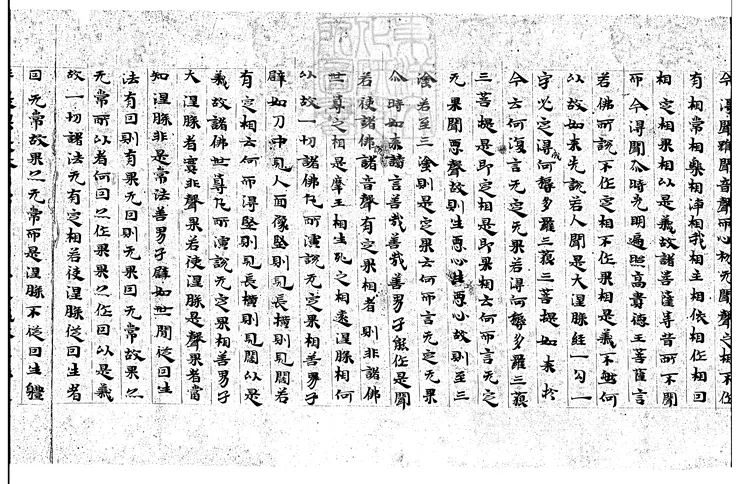 今得聞雖聞音聲而心初无聞聲之相不作
有相常相樂相淨相我相主相依相作相因
相定相果相以是義故諸菩薩等昔所不聞
而今得聞尒時光明遍照高貴德王菩薩言
若佛所說不作定相不作果相是義不然何
以故如來先說若人聞是大涅槃經一句一
字必定得成阿耨多羅三藐三菩提如來於
今云何復言无定无果若得阿耨多羅三藐
三菩提是即定相是即果相云何而言无定
无果聞惡聲故則生惡心生惡心故則至三
塗若至三塗則是定果云何而言无定无果
尒時如來讚言善哉善哉善男子能作是聞
若使諸佛說諸音聲有定果相者則非諸佛
世尊之相是魔王相生死之相遠涅槃相何
以故一切諸佛凡所演說无定果相善男子
譬如刀中見人面像竪則見長橫則見闊若
有定相云何而得竪則見長橫則見闊以是
義故諸佛世尊凡所演說无定果相善男子
大涅槃者實非聲果若使涅槃是聲果者當
知涅槃非是常法善男子譬如世間從因生
法有因則有果无因則无果因无常故果亦
无常所以者何因亦作果果亦作因以是義
故一切諸法无有定相若使涅槃從因生者
因无常故果亦无常而是涅槃不從因生體